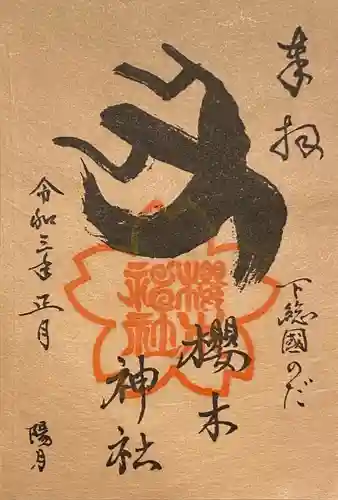 奉拝
下總國のだ
櫻木
神社
櫻木
神社
令和三年正月
陽月